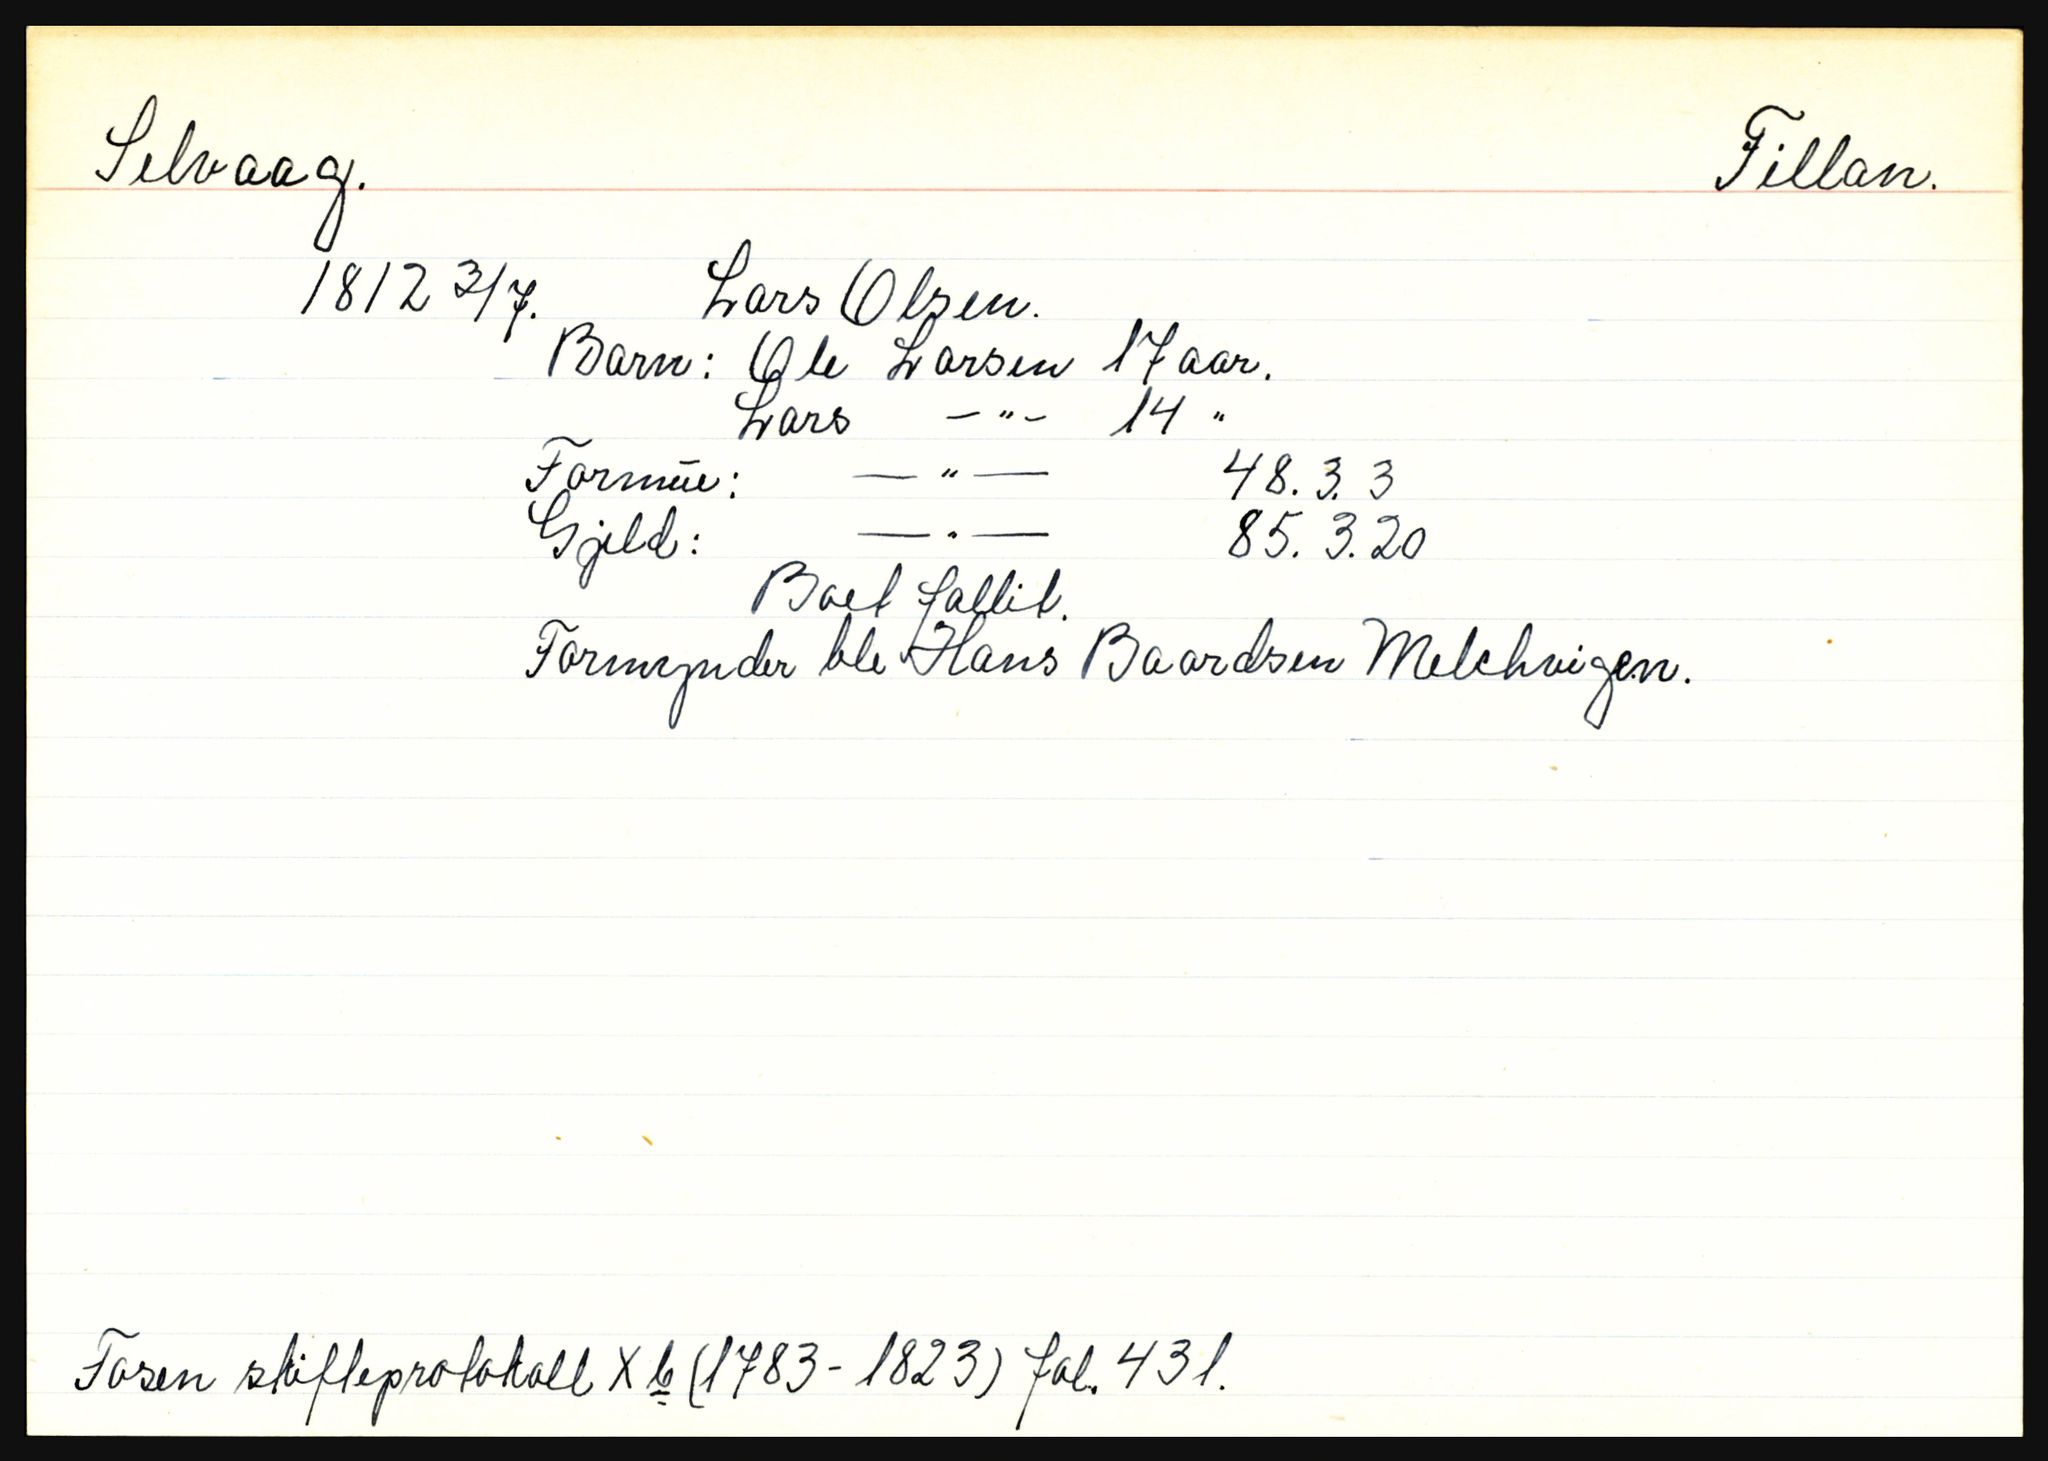 Selvaag. Fillan.
1812 3/7. Lars Olsen.
Barn: Ole Larsen 17 aar.
Lars -"- 14 "
Formūe: -"- 48. 3. 3
Gjeld: -"- 85. 3. 20
Boet fallit.
Formynder ble Hans Baardsen Melchvigen.
Fosen skifteprotokoll X b (1783-1823) fol. 431.